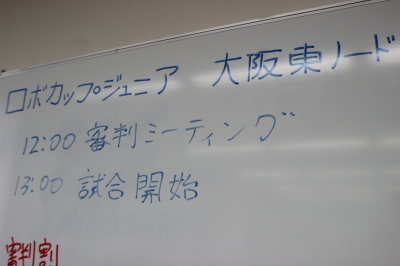 ロボカップジュニア 大阪東ノード
12:00 審判ミーティング
13:00 試合開始
審判割